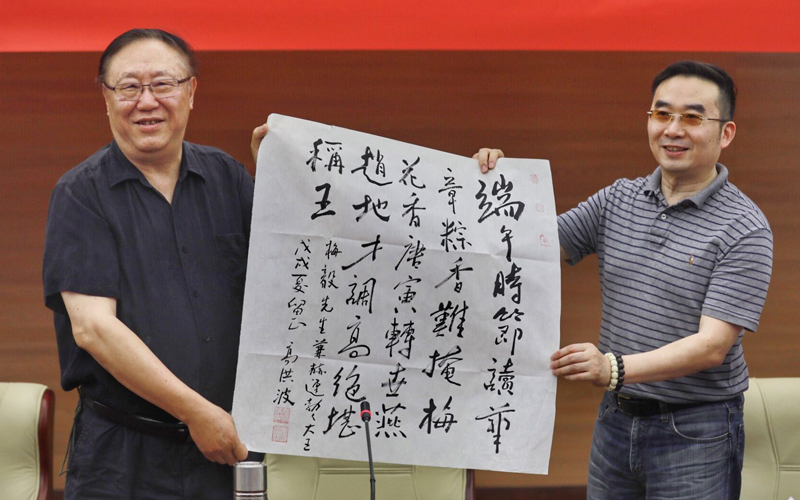 端午時節讀華
章粽香難掩梅
花香唐寅轉世燕
趙地才調高絕堪
稱王
梅毅先生兼赫連勃々大王
戊戌夏留正 高洪波